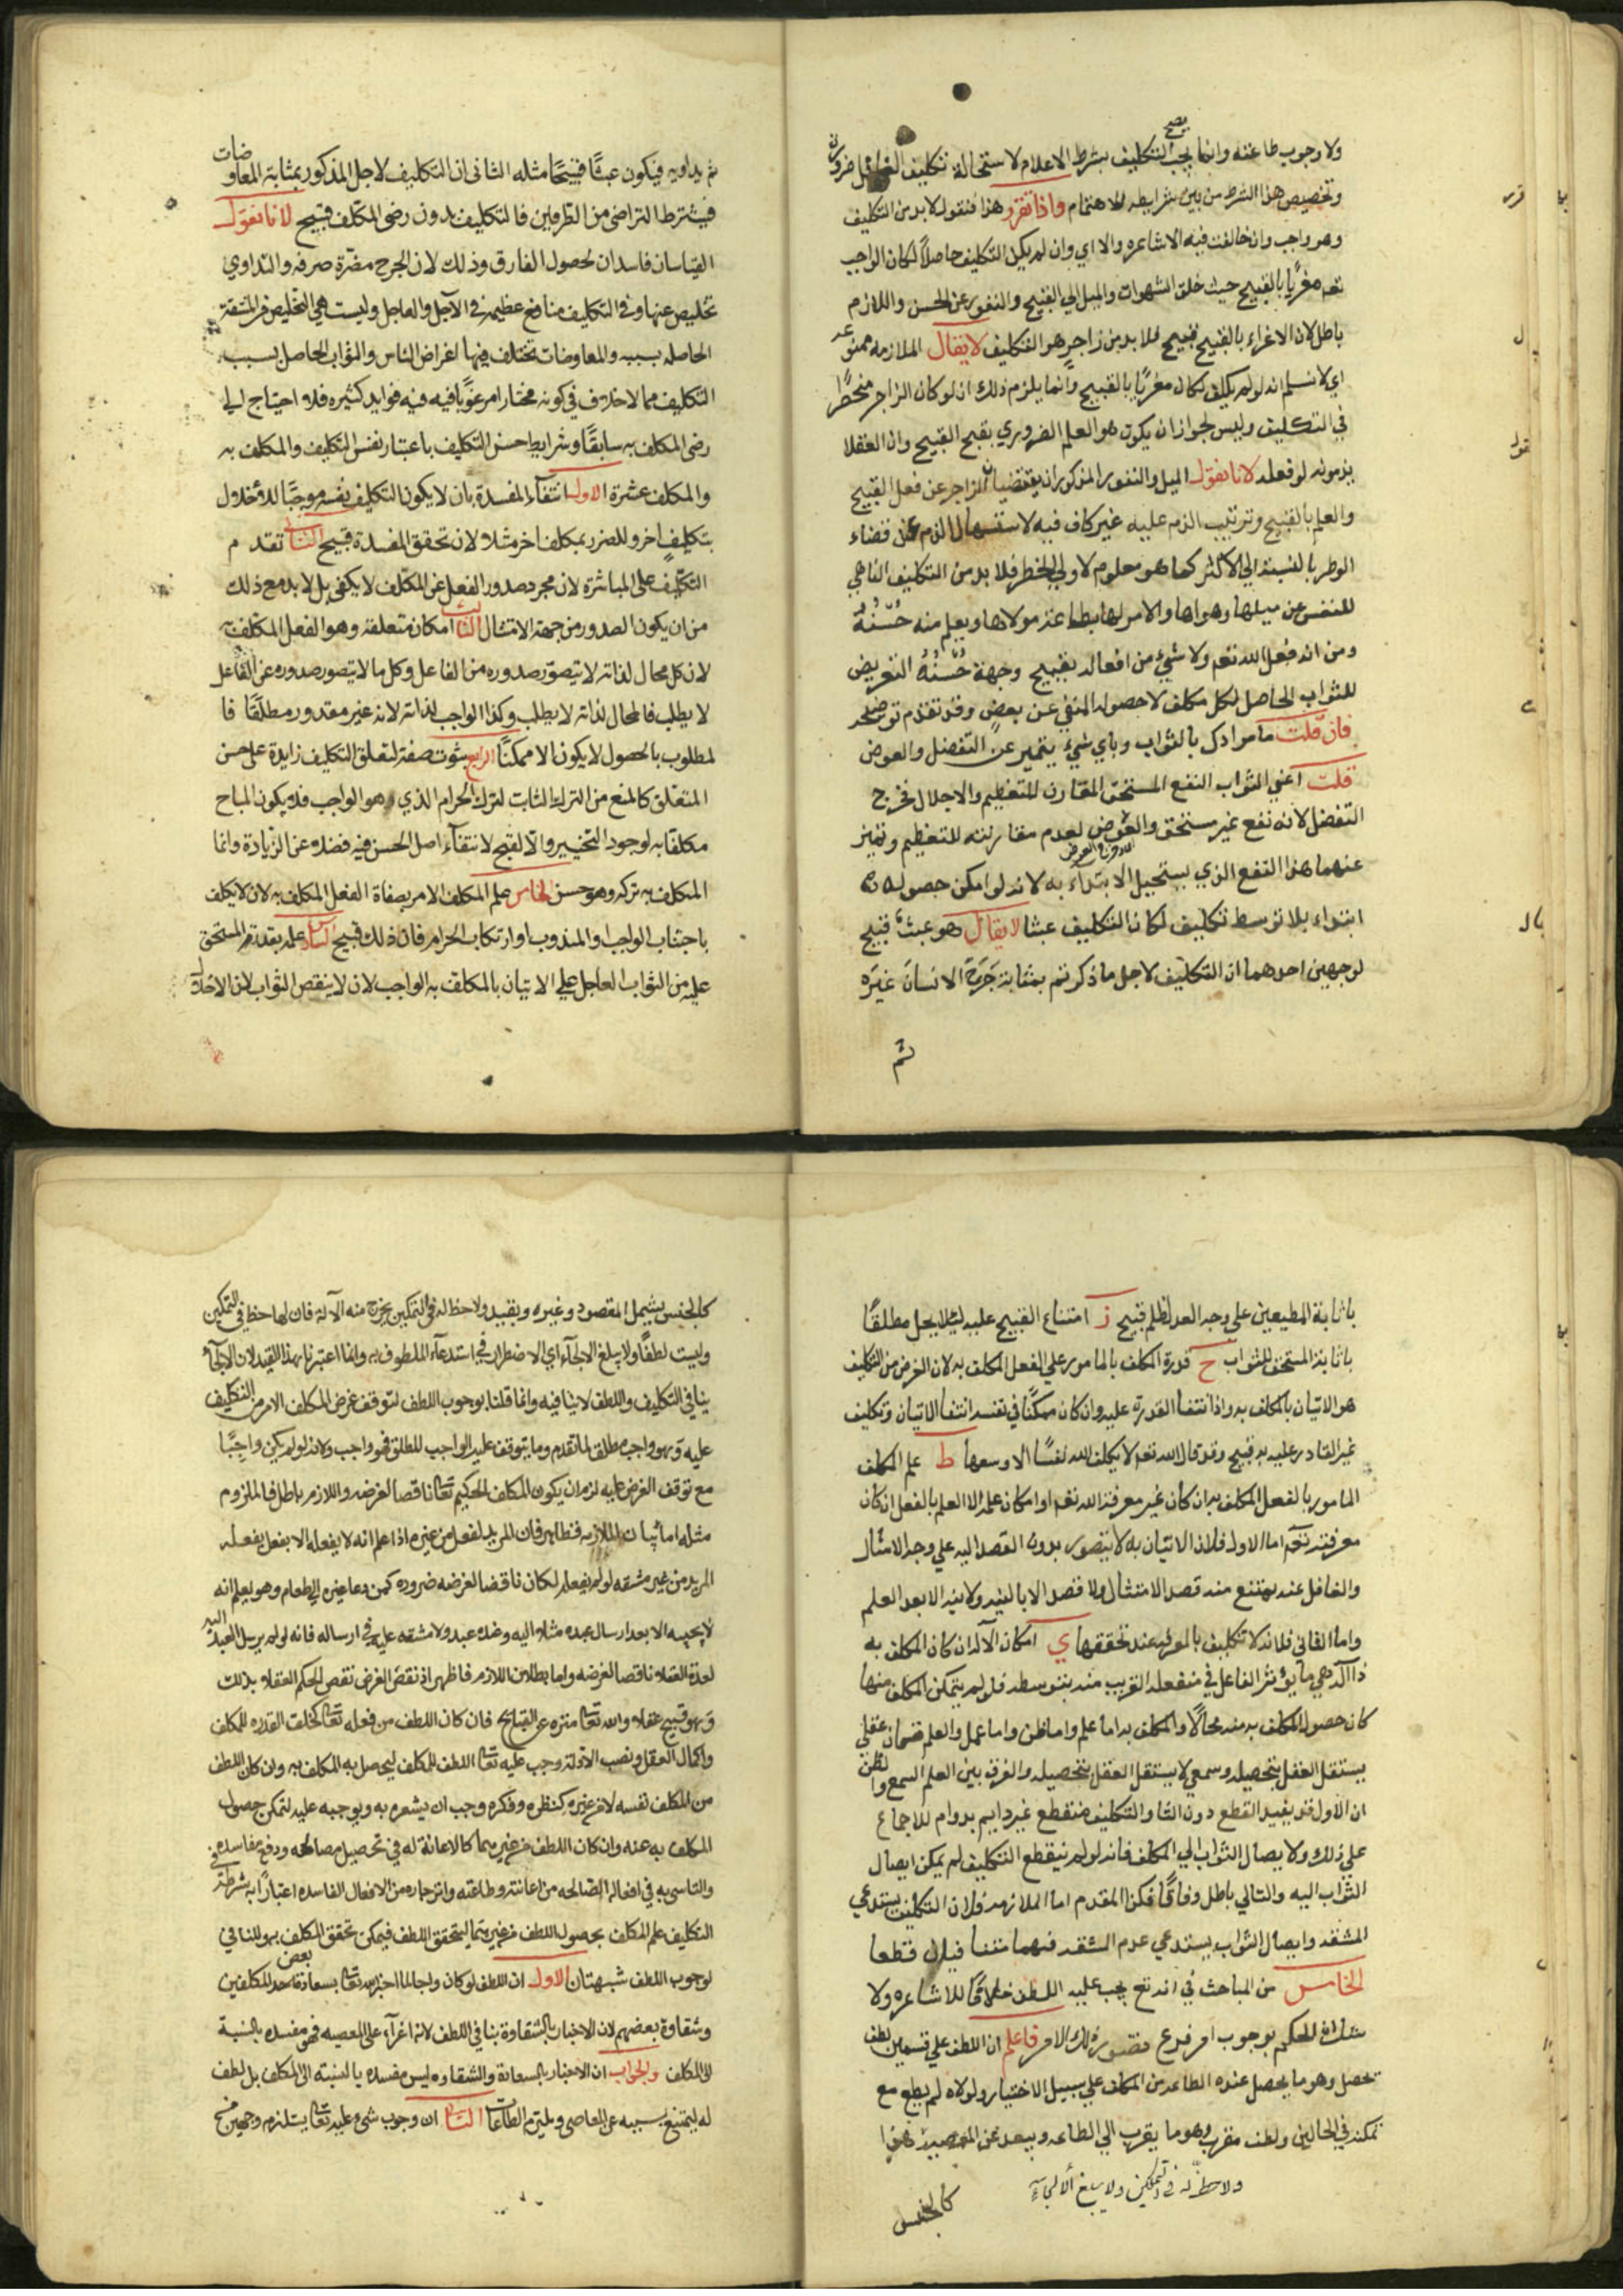 ولا وجوب طاعته وانما يجب التكليف بشرط الاعلام لاستحالة تكليف الغافل ضرورة
يصح
وتخصيص هذا الشرط من بين شرايطه للاهتمام واذا تقرر هذا فنقول لابد من التكليف
وهو واجب وان خالفت فيه الاشاعره والا اي وان لم يكن التكليف حاصلاً لكان الواجب
تعه مغريًا بالقبيح حيث خلق الشهوات والميل الي القبيح والنفور عن الحسن واللازم
باطل لان الاغراء بالقبيح قبيح فلابد من زاجر هو التكليف لا يقال الملازمه ممنوعه
اي لا نسلم انه لو لم يكلف لكان مغريًا بالقبيح وانما يلزم ذلك ان لو كان الزاجر منحصرًا
في التكليف وليس لجواز ان يكون هو العلم الضروري بقبح القبيح وان العقلا
يذمونه لو فعله لانا نقول الميل والنفور المذكوران يقتضيان الزاجر عن فعل القبيح
والعلم بالقبيح وترتيب الذم عليه غير كاف فيه لاستسهال الذم عن قضاء
الوطر بالنسبة الي الاكثر كما هو معلوم لاولي الخطر فلابد من التكليف الناهي
للنفس عن ميلها وهواها والامر لها بطاعة مولاها ويعلم منه حُسْنُهُ
ومن انه فعل الله تعه ولا شيء من افعاله بقبيح وجهة حُسْنُهُ التعريض
للثواب الحاصل لكل مكلف لا حصوله المنفي عن بعضٍ وقد تقدم توضيحه
فان قلت ما مرادك بالثواب وباي شيء يتميز عن التفضل والعوض
قلت اعني الثواب النفع المستحق المقارن للتعظيم والاجلال فخرج
التفضل لانه نفع غير مستحق والعوض لعدم مقارنته للتعظيم وتميز
عنهما هذا النفع الذي يستحيل الابتداء به لانه لو امكن حصوله
ابتداء بلا توسط تكليف لكان التكليف عبثا لا يقال هو عبثٌ قبيح
لوجهين احدهما ان التكليف لاجل ما ذكرتم بمثابة جَرَحَ الانسانَ غيَره
ثم
ثم يداويه فيكون عبثًا قبيحًا مثله الثاني ان التكليف لاجل المذكور بمثابة المعاوضات
فيشترط التراضي من الطرفين فالتكليف بدون رضى المكلف قبيح لانا نقول
القياسان فاسدان لحصول الفارق وذلك لان الجرح مضرة صرفه والتداوي
تخليص عنها وفي التكليف منافع عظيمة في الآجل والعاجل وليست هي التخليص من المشقة
الحاصله بسببه والمعاوضات تختلف فيها اغراض الناس والثواب الحاصل بسبب
التكليف مما لا خلاف في كونه مختارا مرغوبًا فيه فيه فوايد كثيره فلا احتياج الي
رضى المكلف به سابقًا وشرايط حسن التكليف باعتبار نفس التكليف والمكلف به
والمكلف عشرة الاول انتفاء المفسدة بان لا يكون التكليف نفسه موجبًا للاخلال
بتكليفٍ اخر وللضرر بمكلف اخر مثلا لان تحقق المفسدة قبيح الثاني تقدم
التكليف على المباشرة لان مجرد صدور الفعل عن المكلف لا يكفي بل لابد مع ذلك
من ان يكون الصدور من جهة الامتثال الثالث امكان متعلقه وهو الفعل المكلف به
لان كل محال لذاته لا يتصوّر صدوره من الفاعل وكل ما لا يتصور صدوره عن الفاعل
لا يطلب فالمحال لذاته لا يطلب وكذا الواجب لذاته لانه غير مقدور مطلقًا فا
لمطلوب بالحصول لا يكون الا ممكنًا الرابع ثبوت صفة لتعلق التكليف زايدة على حسن
المتعلق كالمنع من الترك الثابت لترك الحرام الذي هو الواجب فلا يكون المباح
مكلفًا به لوجود التخيير والا لقبح لانتفاء اصل الحسن فيه فضلا عن الزيادة وانما
المكلف به تركه وهو حسن الخامس علم المكلف الامر بصفاة الفعل المكلف به لان لا يكلف
باجتناب الواجب والمندوب او ارتكاب الحرام فان ذلك قبيح السادس علمه بقدر المستحق
عليه من الثواب العاجل علي الاتيان بالمكلف به الواجب لان لا ينقص الثواب لان الاخلال
باثابة المطيعين علي وجه العدل ظلم قبيح ز امتناع القبيح عليه لئلا يخل مطلقًا
باثابة المستحق للثواب ح قدرة المكلف بالمامور علي الفعل المكلف به لان الغرض من التكليف
هو الاتيان بالمكلف به واذا انتفا القدرة عليه وان كان ممكنًا في نفسه انتفا الاتيان وتكليف
غير القادر عليه به قبيح وقد قال الله تعه لا يكلف الله نفسًا الا وسعها ط علم المكلف
المامور بالفعل المكلف به ان كان غير معرفة الله تعه او امكان علمه الا العلم بالفعل ان كان
معرفته تعه اما الاول فلان الاتيان به لا يتصور بدون القصد اليه علي وجه الامتثال
والغافل عنه يمتنع منه قصد الامتثال ولا قصد الا بالنيه ولا نيه الا بعد العلم
واما الثاني فلانه لا تكليف بالمعرفه عند تحققها ي امكان الآلة ان كان المكلف به
ذا آلة وهي ما يؤثر الفاعل في منفعله القريب منه بتوسطه فلو لم يتمكن المكلف منها
كان حصول المكلف به منه محالًا والمكلف به اما علم واما ظن واما عمل والعلم قسمان عقلي
يستقل العقل بتحصيله وسمعي لا يستقل العقل بتحصيله والفرق بين العلم السمعي والظن
ان الاول قد يفيد القطع دون الثا والتكليف منقطع غير دايم بدوام للاجماع
علي ذلك ولايصال الثواب الي المكلف فانه لو لم ينقطع التكليف لم يمكن ايصال
الثواب اليه والتالي باطل وفاقًا فكذا المقدم اما الملازمه فلان التكليف يستدعي
المشقه وايصال الثواب يستدعي عدم المشقه فبينهما تنفا قطعا
الخامس من المباحث في انه تع يجب عليه اللطف خلافًا للاشاعره ولا
شك ان الحكم بوجوب امر فرع تصور ذلك الامر فاعلم ان اللطف علي قسمين لطف
محصل وهو ما يحصل عنده الطاعه من المكلف علي سبيل الاختيار ولولاه لم يطع مع
تمكنه في الحالين ولطف مقرب وهو ما يقرب الي الطاعه ويبعد عن المعصيه فهذا
ولا حظّ له في التمكين ولا يبلغ الالجاء
كالجنس
كالجنس يشمل المقصود وغيره وبقيد ولا حظ له في التمكين يخرج منه الآلة فان لها حظ في التمكين
وليست لطفًا ولا يبلغ الالجآء اي الاضطرار في استدعآء الملطوف به وانما اعتبرنا هذا القيد لان الالجآء
ينافي التكليف واللطف لا ينافيه وانما قلنا بوجوب اللطف لتوقف غرض المكلف الامر من التكليف
عليه وهو واجب مطلق لما تقدم وما يتوقف عليه الواجب المطلق فهو واجب ولانه لو لم يكن واجبًا
مع توقف الغرض عليه لزم ان يكون المكلف الحكيم تعالى ناقصا لغرضه واللازم باطل فالملزوم
مثله اما بيان الملازمه فظاهر فان المريد لفعل من غيره اذا علم انه لا يفعله الا بفعل يفعله
المريد من غير مشقه لو لم يفعله لكان ناقضا لغرضه ضروره كمن دعا غيره الي طعام وهو يعلم انه
لا يجيبه الا بعد ارسال عبده مثلا اليه وعنده عبد ولا مشقه عليه في ارساله فانه لو لم يرسل العبد اليه
لعدّه العقلاء ناقصا لغرضه واما بطلان اللازم فظاهر اذ نقض الغرض نقص لحكم العقلاء بذلك
وهو قبيح عقلا والله تعالى منزه عن القبايح فان كان اللطف من فعله تعالى كخلق القدره للمكلف
واكمال العقل ونصب الادلة وجب عليه تعالى اللطف للمكلف ليحصل به المكلف به وان كان اللطف
من المكلف نفسه لا من غيره كنظره وفكره وجب ان يشعره به ويوجبه عليه لتمكن حصول
المكلف به عنه وان كان اللطف من غيرهما كالاعانة له في تحصيل مصالحه ودفع مفاسده
والتاسي به في افعاله الصالحه من اعانته وطاعته وانزجاره من الافعال الفاسده اعتبارًا به شرط في
التكليف علم المكلف بحصول اللطف من غيرهما ليتحقق اللطف فيمكن تحقق المكلف به وللنافي
لوجوب اللطف شبهتان الاول ان اللطف لو كان واجبا لما اخبر الله تعالى بسعادة بعض المكلفين
وشقاوة بعضهم لان الاخبار بالشقاوة ينافي اللطف لانه اغرآء على المعصيه فهو مفسده بالنسبة
الى المكلف والجواب ان الاخبار بالسعادة والشقاوه ليس مفسده بالنسبة الى المكلف بل لطف
له ليمتنع بسببه عن المعاصي ويلتزم الطاعات الثانيه ان وجوب شيء عليه تعالى يستلزم وجهين